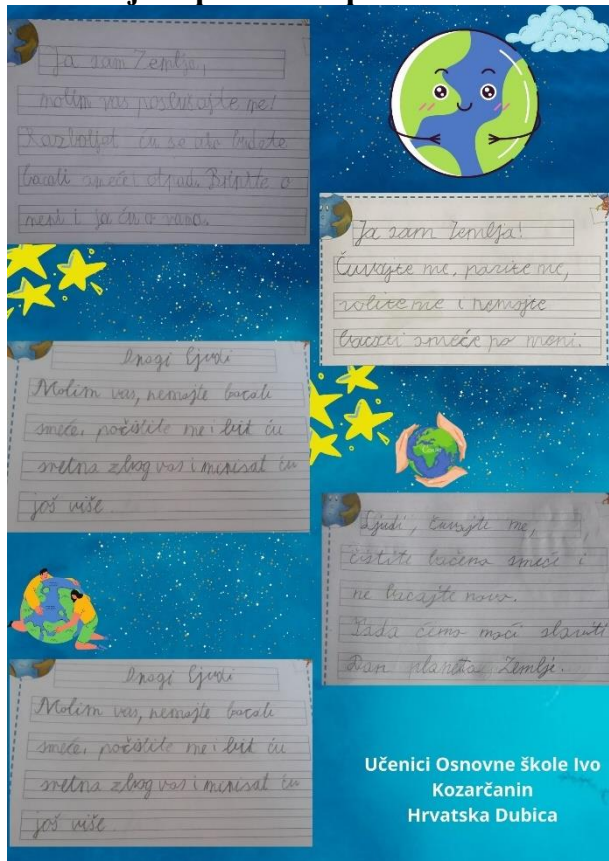 Ja sam Zemlja,
molim vas poslušajte me!
Razboljet ću se ako budete
bacali smeće i otpad. Brinite o
meni i ja ću o vama.
Ja sam Zemlja!
Čuvajte me, pazite me,
volite me i nemojte
bacati smeće po meni.
Dragi ljudi
Molim vas, nemojte bacati
smeće, počistite me i bit ću
sretna zbog vas i mirisat ću
još više.
Ljudi, čuvajte me,
čistite bačeno smeće i
ne bacajte novo.
Tada ćemo moći slaviti
Dan planeta Zemlje.
Dragi ljudi
Molim vas, nemojte bacati
smeće, počistite me i bit ću
sretna zbog vas i mirisat ću
još više.
Učenici Osnovne škole Ivo
Kozarčanin
Hrvatska Dubica